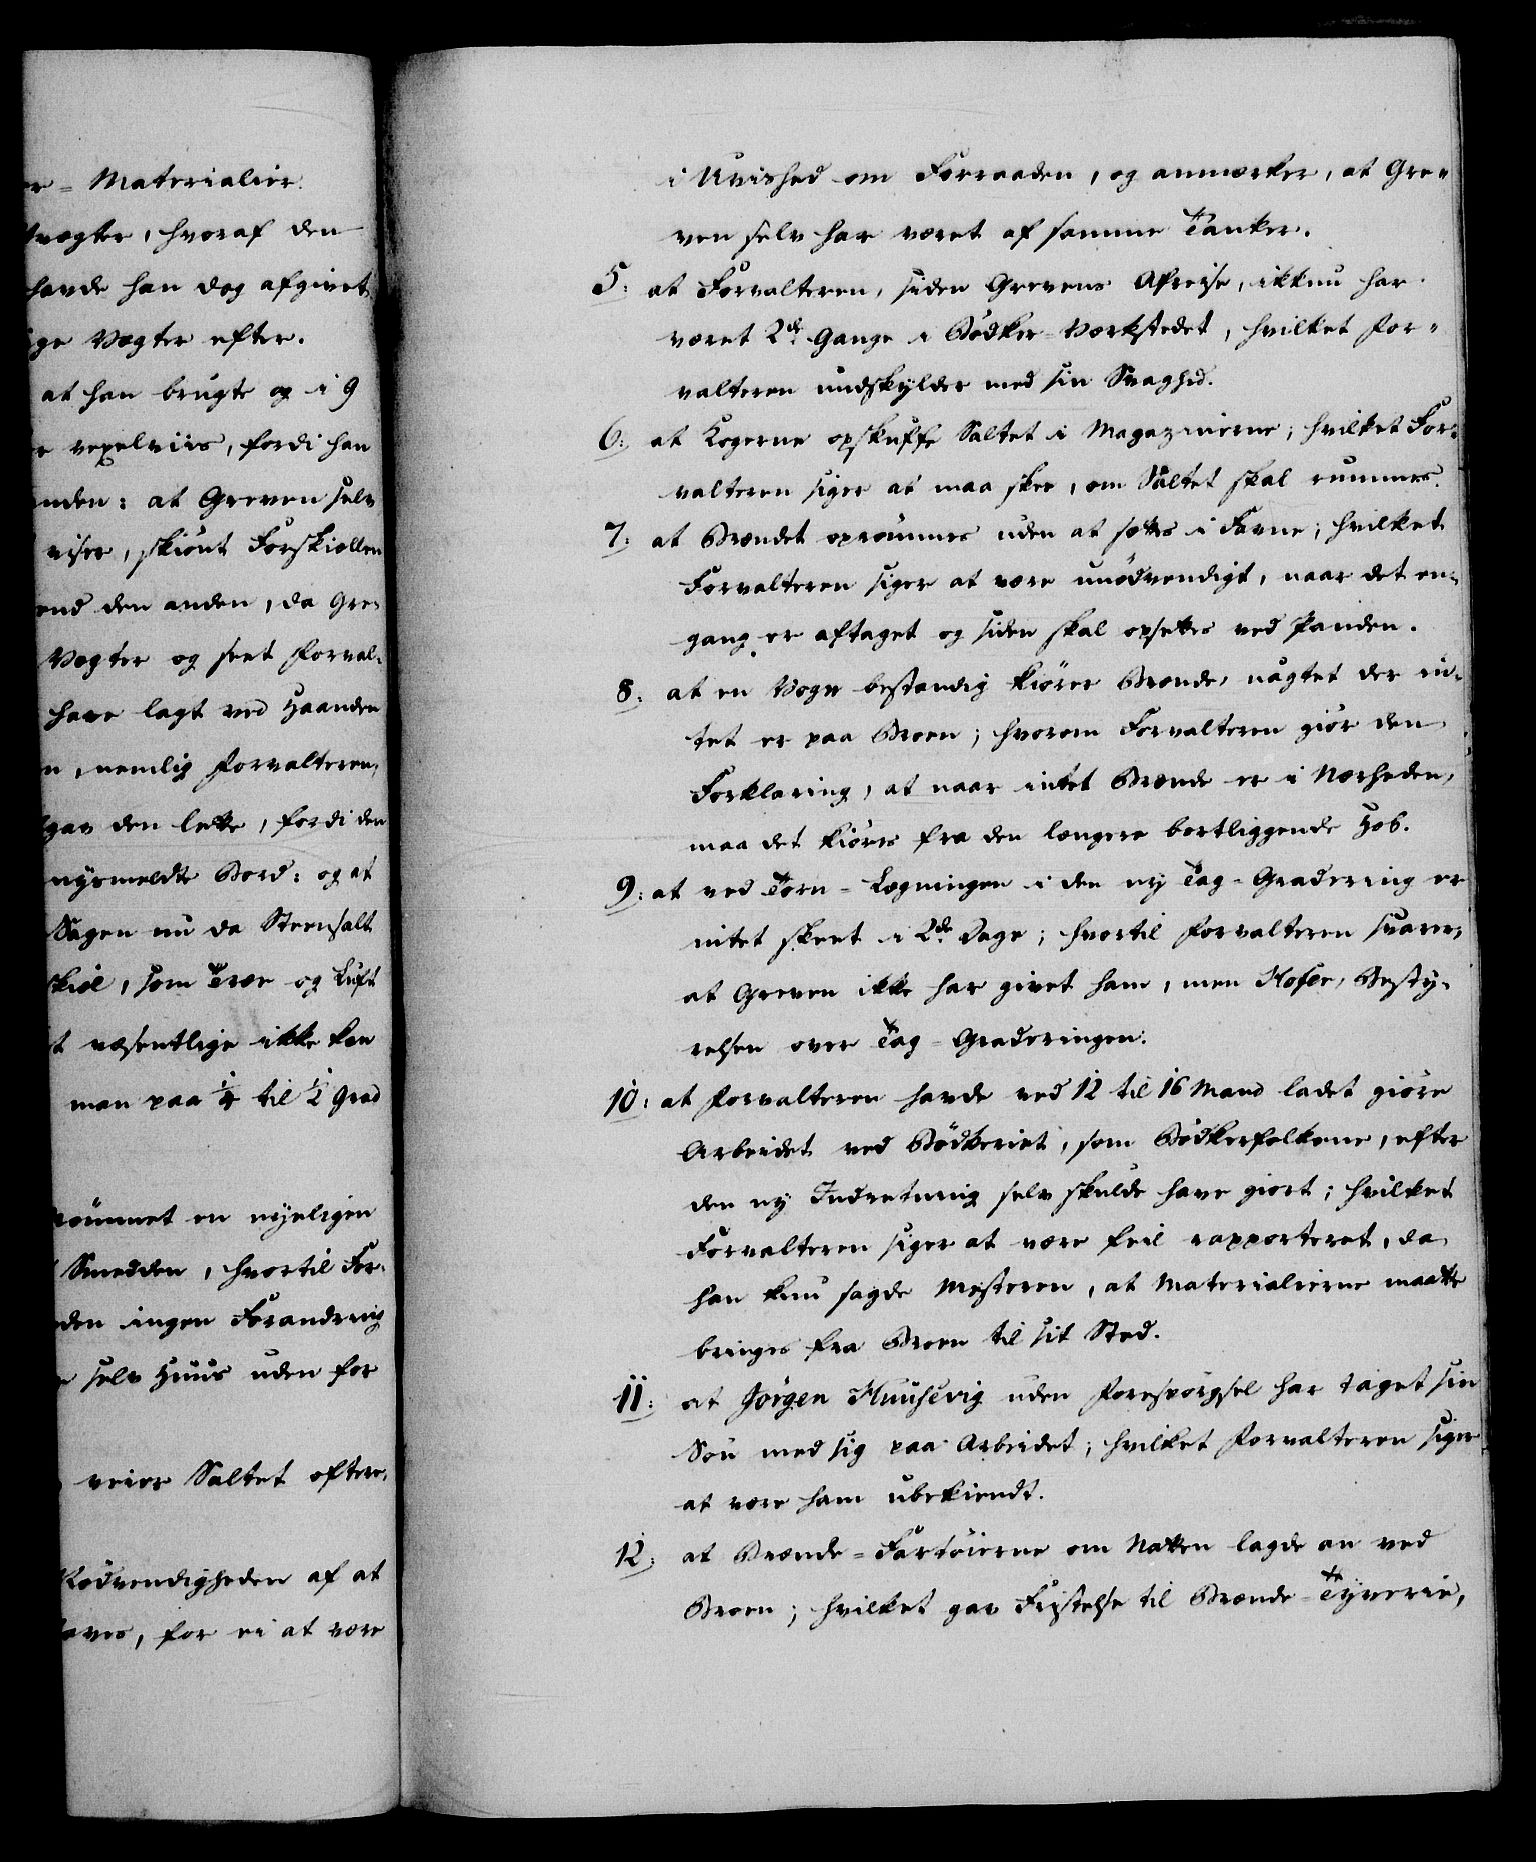 r = Materialier.
vægter, hvoraf den
havde han dog afgivet
ge Vægter efter.
at han brugte op i 9
e vexelviis, fordi han
nden: at Greven selv
viser, skiönt Forskiællen
end den anden, da Gre-
Vægter og seet Forval-
have lagt ved Haanden
n, nemlig Forvalteren,
gav den lette, fordi den
nysmeldte Bord: og at
Sagen nu da Steensalt
skiöl, som Træe og Luft
t væsentlige ikke kan
man paa 1/4 til 1/2 Grad
römmet en nyeligen
Smedden, hvortil For-
den ingen Forandring
e selv Huus uden for
veier Saltet eftere,
Nödvendigheden af at
aves, for ei at være
i Uvished om Forraaden, og anmærker, at Gre-
ven selv har været af samme Tanker.
5: at Forvalteren, siden Grevens Afreise, ikkun har
været 2de Gange i Bödker-Værkstedet, hvilket For-
valteren undskylder med sin Svaghed.
6: at Kogerne opskuffe Saltet i Magazinerne; hvilket For-
valteren siger at maa skee, om Saltet skal rummes.
7: at Brændet oprömmes uden at sættes i Favne; hvilket
Forvalteren siger at være unödvendigt, naar det en-
gang er aftaget og siden skal opsettes ved Panden.
8: at en Vogn bestandig kiörer Brænde, uagtet der in-
tet er paa Broen; hvorom Forvalteren giör den
Forklaring, at naar intet Brænde er i Nærheden,
maa det kiöres fra den længere bortliggende Hob.
9: at ved Torn-Lægningen i den ny Tag-Gradering er
intet skeet i 2de Dage; hvortil Forvalteren svarer,
at Greven ikke har givet ham, men Hofer, Besty-
relsen over Tag-Graderingen.
10: at Forvalteren havde ved 12 til 16 Mand ladet giöre
Arbeidet ved Bödkeriet, som Bödkerfolkene, efter
den ny Indretning selv skulde have giort; hvilket
Forvalteren siger at være feil rapporteret, da
han kun sagde Mesteren, at Materialierne maatte
bringes fra Broen til sit Sted.
11: at Jörgen Huusevig uden Forespörgsel har taget sin
Sön med sig paa Arbeidet; hvilket Forvalteren siger
at være ham ubekiendt.
12: at Brænde-Fartöierne om Natten lagde an ved
Broen; hvilket gav Fristelse til Brænde-Tyverie,